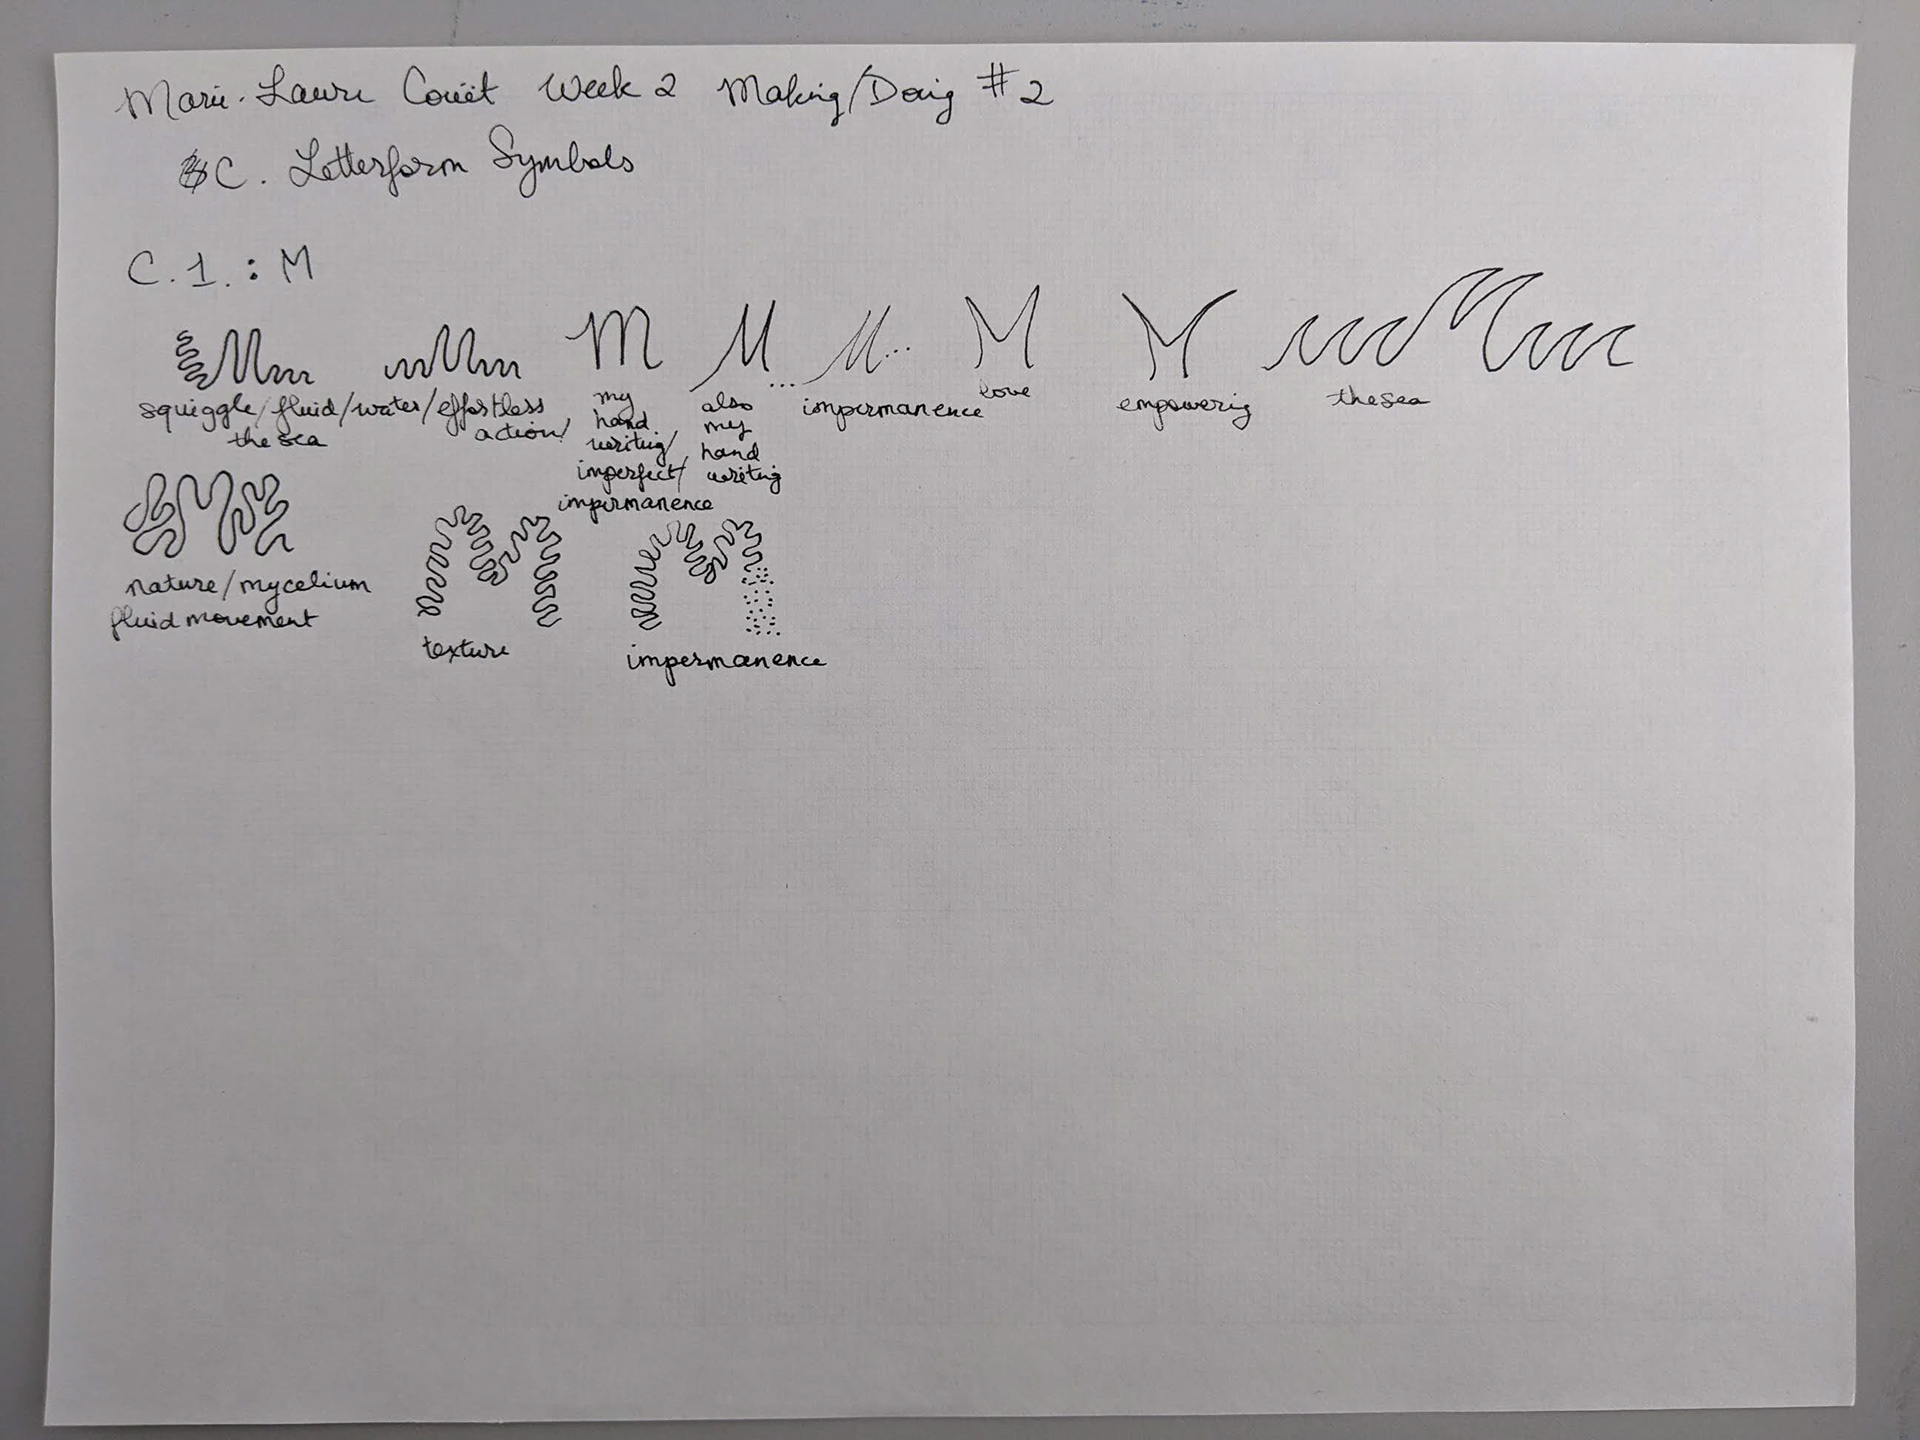 Marie-Laure Couët Week 2 Making/Doing #2
C. Letterform Symbols
C.1. : M
M M M M... M... M M M
squiggle/fluid/water/effortless action/
the sea
my
hand
writing/
imperfect/
impermanence
also
my
hand
writing
... impermanence
love
empowering
the sea
M M M
nature/mycelium
fluid movement
texture
impermanence